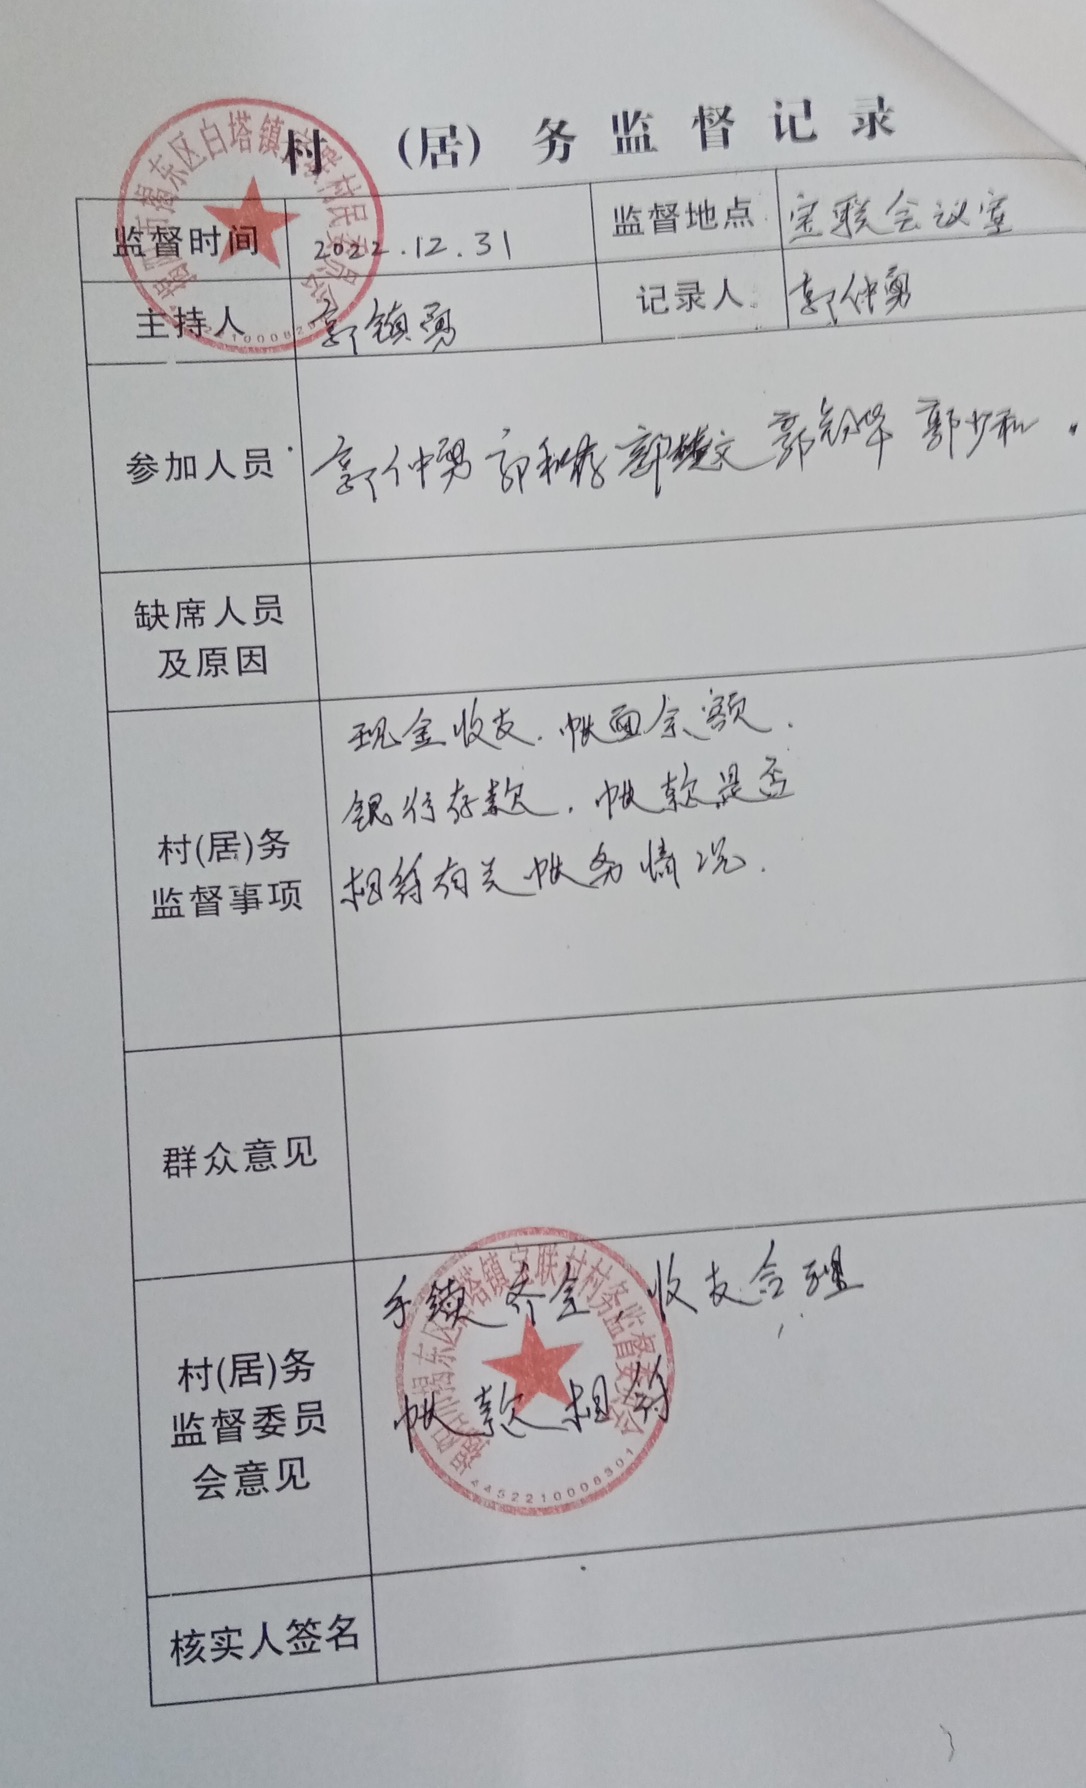 村 （居）务监督记录
监督时间 2022.12.31 监督地点 宝联会议室
主持人 郭镇勇 记录人 郭仲勇
参加人员 郭仲勇 郭和存 郭 文 郭 华 郭少和
缺席人员
及原因
村(居)务
监督事项
现金收支、帐面余额、
银行存款、帐款是否
相符有关帐务情况.
群众意见
村(居)务
监督委员
会意见
手续齐全、收支合理
帐款相符
核实人签名
揭阳市揭东区白塔镇宝联村村民委员会
揭阳市揭东区白塔镇宝联村村务监督委员会
4452210008301